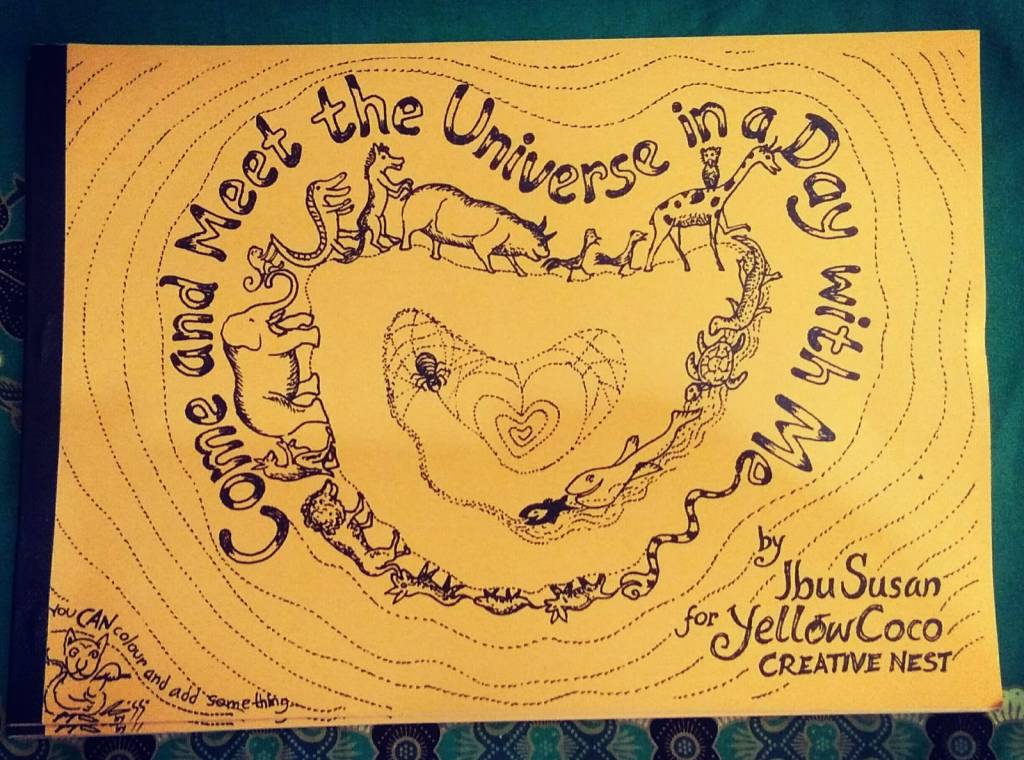 Come and Meet the Universe in a Day with Me
by
Ibu Susan
for YellowCoco
CREATIVE NEST
YOU CAN colour and add something